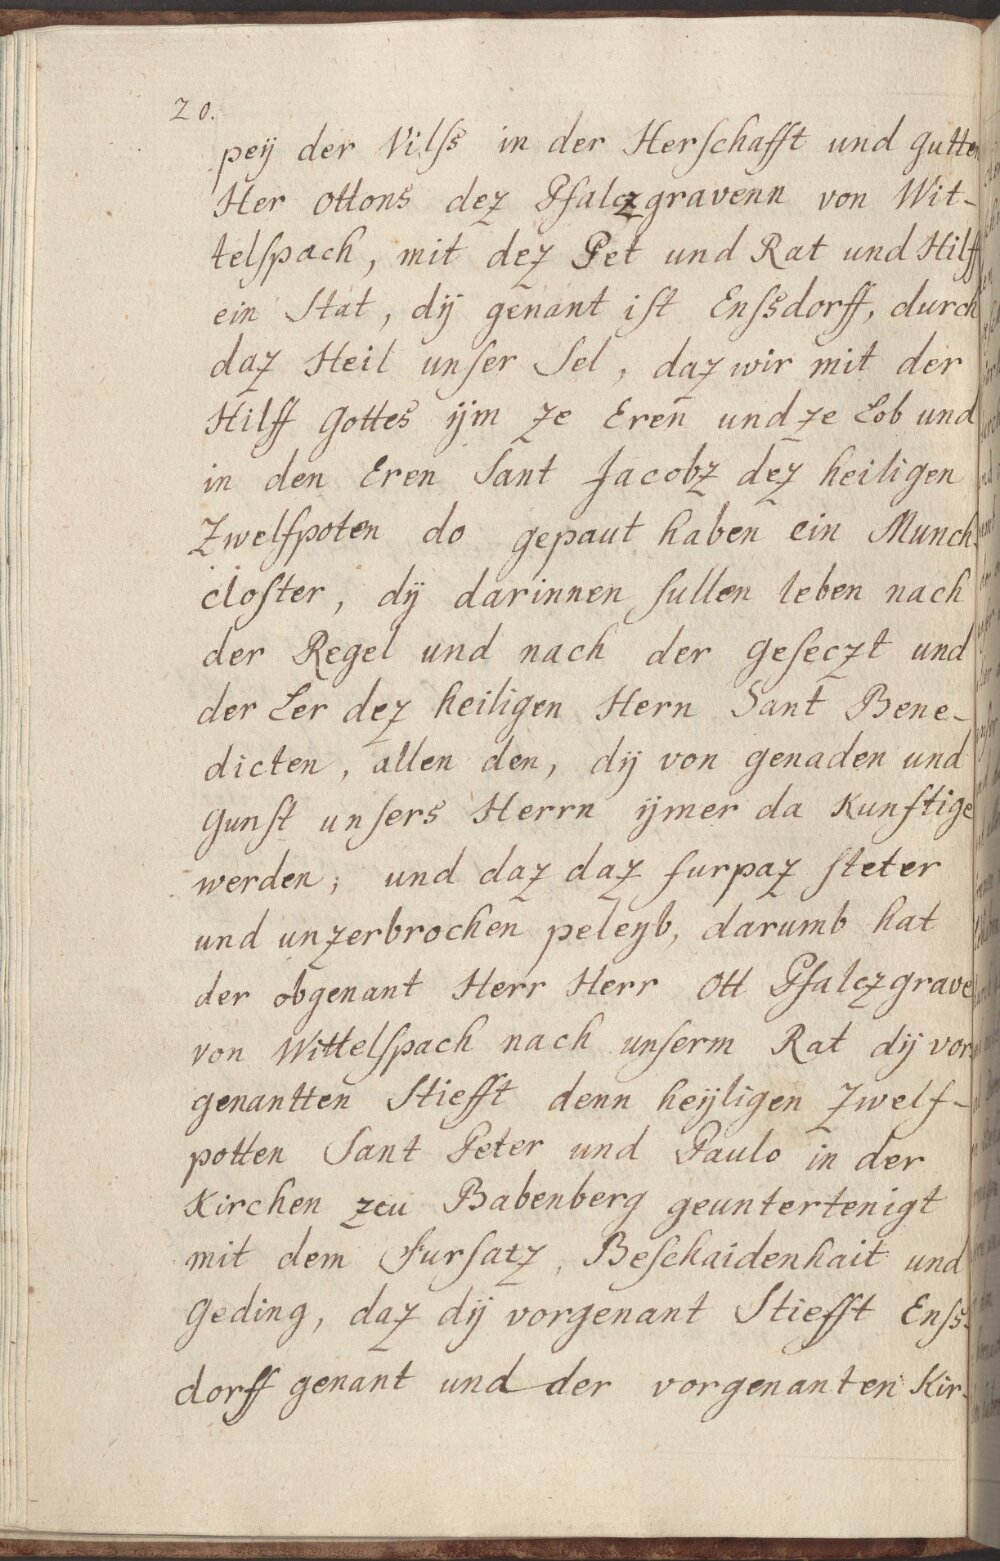 20.
peÿ der Vilſs in der Herſchafft und gutten
Her Ottons dez Pfalczgravenn von Wit-
telſpach, mit dez Pet und Rat und Hilff
ein Stat, dÿ genant iſt Enſsdorff, durch
daz Heil unſer Sel, daz wir mit der
Hilff Gottes ÿm ze Eren und ze Lob und
in den Eren Sant Jacobz dez heiligen
Zwelfpoten do gepaut haben ein Munch-
cloſter, dÿ darinnen ſullen leben nach
der Regel und nach der geſeczt und
der Ler dez heiligen Hern Sant Bene-
dicten, allen den, dÿ von genaden und
Gunſt unſers Herrn ÿmer da Kunftige
werden; und daz daz furpaz ſteter
und unzerbrochen peleÿb, darumb hat
der obgenant Herr Herr Ott Pfalczgrave
von Wittelſpach nach unſerm Rat dÿ vor-
genantten Stiefft denn heÿligen Zwelf-
potten Sant Peter und Paulo in der
Kirchen zcu Babenberg geuntertenigt
mit dem Furſatz, Beſchaidenhait und
Geding, daz dÿ vorgenant Stiefft Enſs-
dorff genant und der vorgenanten Kir-